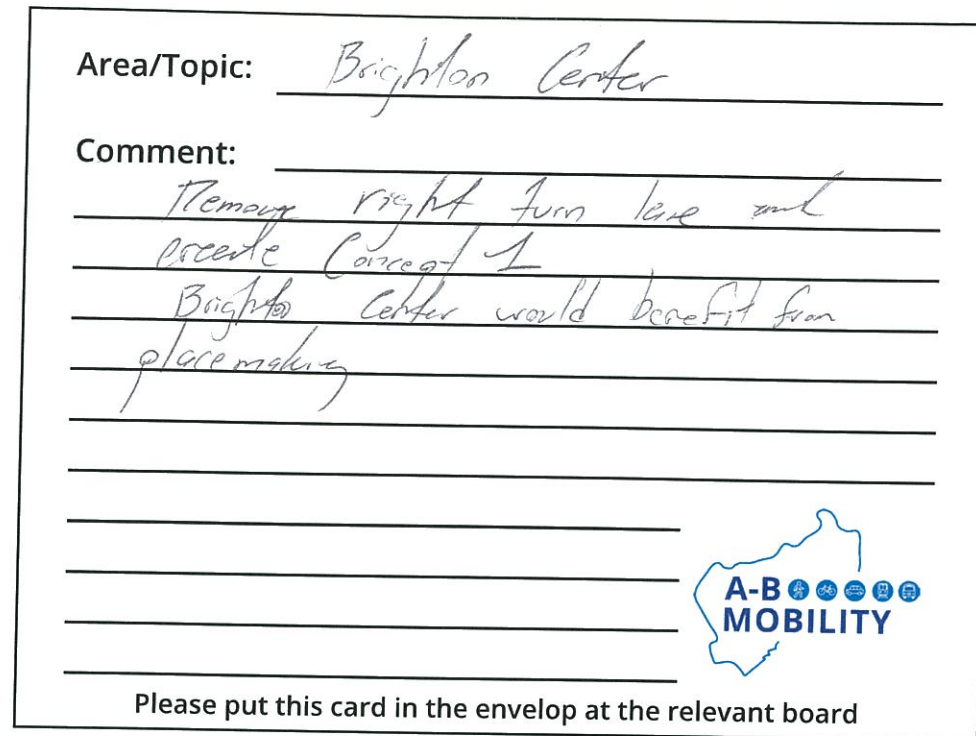 Area/Topic: Brighton Center
Comment:
Remove right turn lane and
create Concept 1
Brighton Center would benefit from
placemaking
A-B
MOBILITY
Please put this card in the envelop at the relevant board